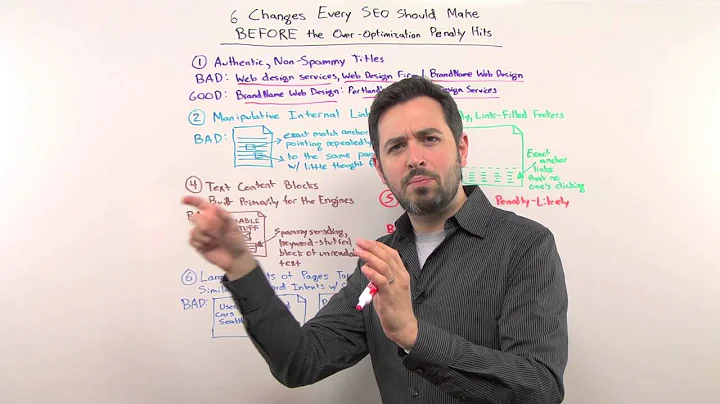 6 Changes Every SEO Should Make
BEFORE the Over-Optimization Penalty Hits
① Authentic, Non-Spammy Titles
BAD: Web design services, Web Design Firm | BrandName Web Design
GOOD: BrandName Web Design: Design Services
② Manipulative Internal
BAD:
exact match anchor
pointing repeatedly
to the same
w/ little thought
Link-Filled Footers
Exact
anchor
links
that no
one's clicking
④ Text Content Blocks
Built Primarily for the Engines
spammy
block of
text
⑤
Penalty-Likely
⑥ of Pages
Intents
BAD:
Used
Cars